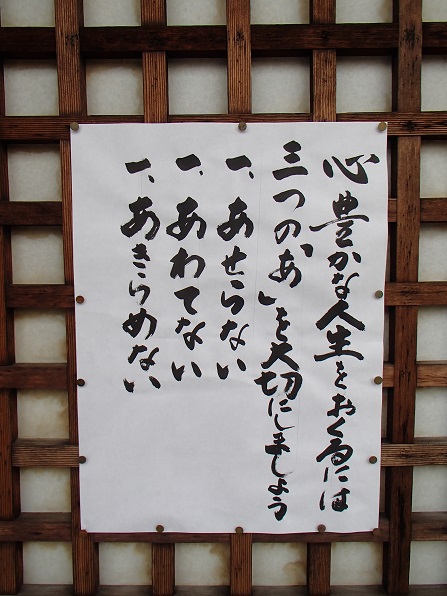 心豊かな人生をおくるには
三つの「あ」を大切にしましょう
一、あせらない
一、あわてない
一、あきらめない